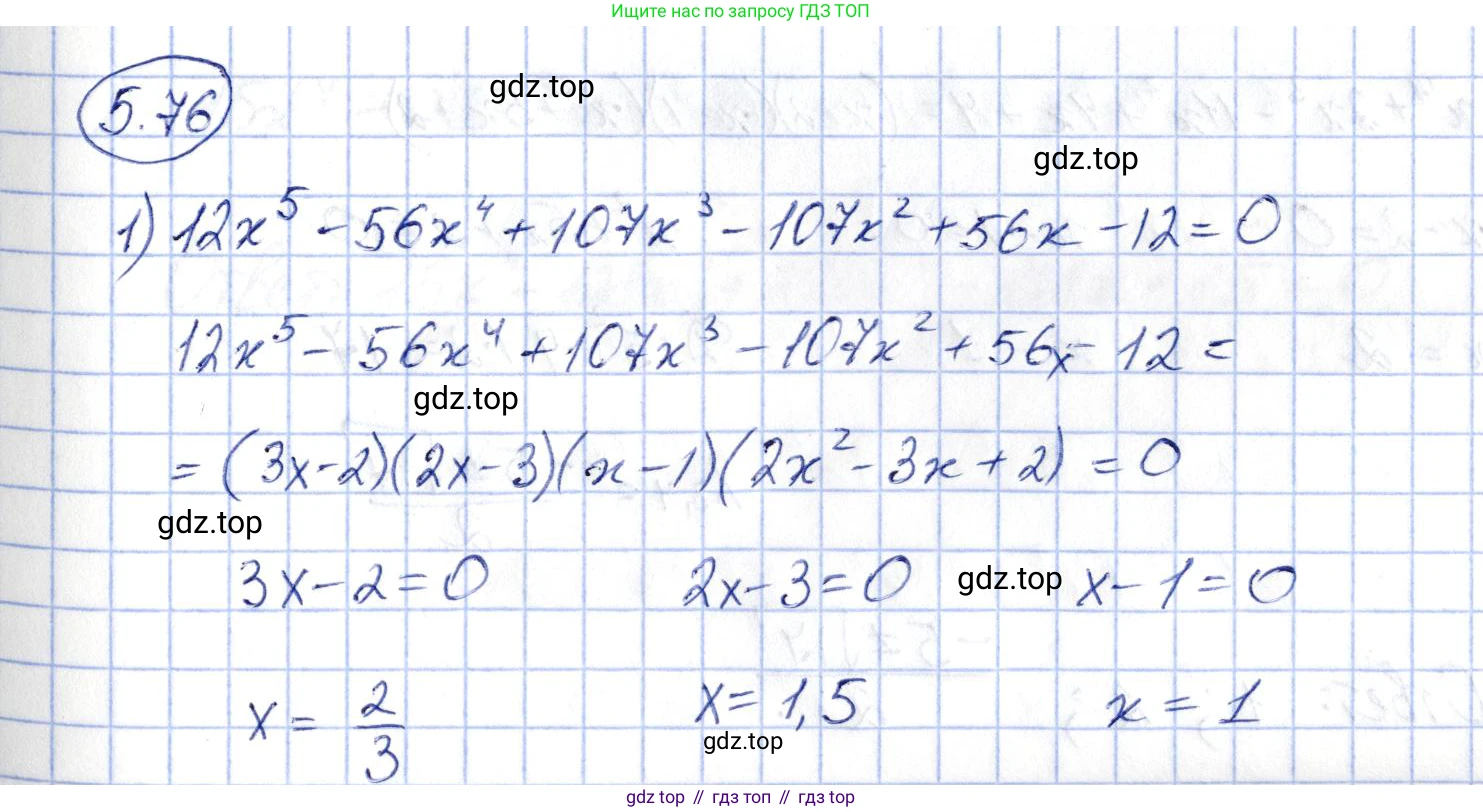 Ищите нас по запросу ГДЗ ТОП
5.76
gdz.top
gdz.top
1) 12x⁵ - 56x⁴ + 107x³ - 107x² + 56x - 12 = 0
12x⁵ - 56x⁴ + 107x³ - 107x² + 56x - 12 =
gdz.top
= (3x-2)(2x-3)(x-1)(2x²-3x+2) = 0
gdz.top
3x-2=0 2x-3=0 gdz.top x-1=0
x = 2/3 x = 1,5 x = 1
gdz.top
gdz top // гдз топ // гдз top